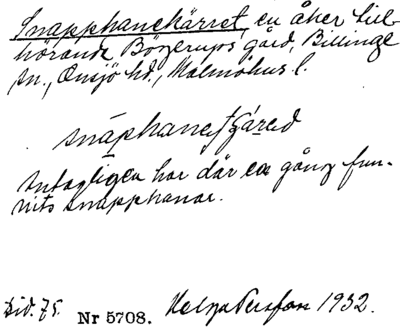 Snapphanekärret, en åker till-
hörande Bögerups gård, Billinge
sn., Onsjö hd., Malmöhus l.
Antagligen har där en gång fun-
nits snapphanar.
Bid. 75. Nr 5708. Helga Persson 1932.